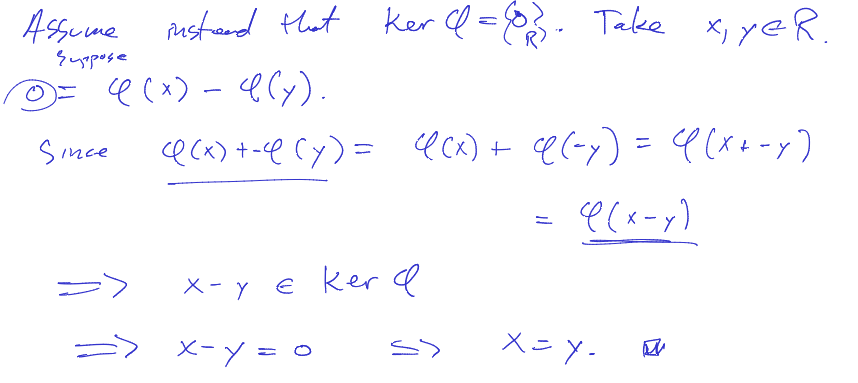 Assume instead that ker φ = {0_R}. Take x, y ∈ R.
Suppose
0 = φ(x) - φ(y).
Since φ(x) + -φ(y) = φ(x) + φ(-y) = φ(x + -y)
= φ(x-y)
⟹ x-y ∈ ker φ
⟹ x-y = 0 ⟺ x = y.